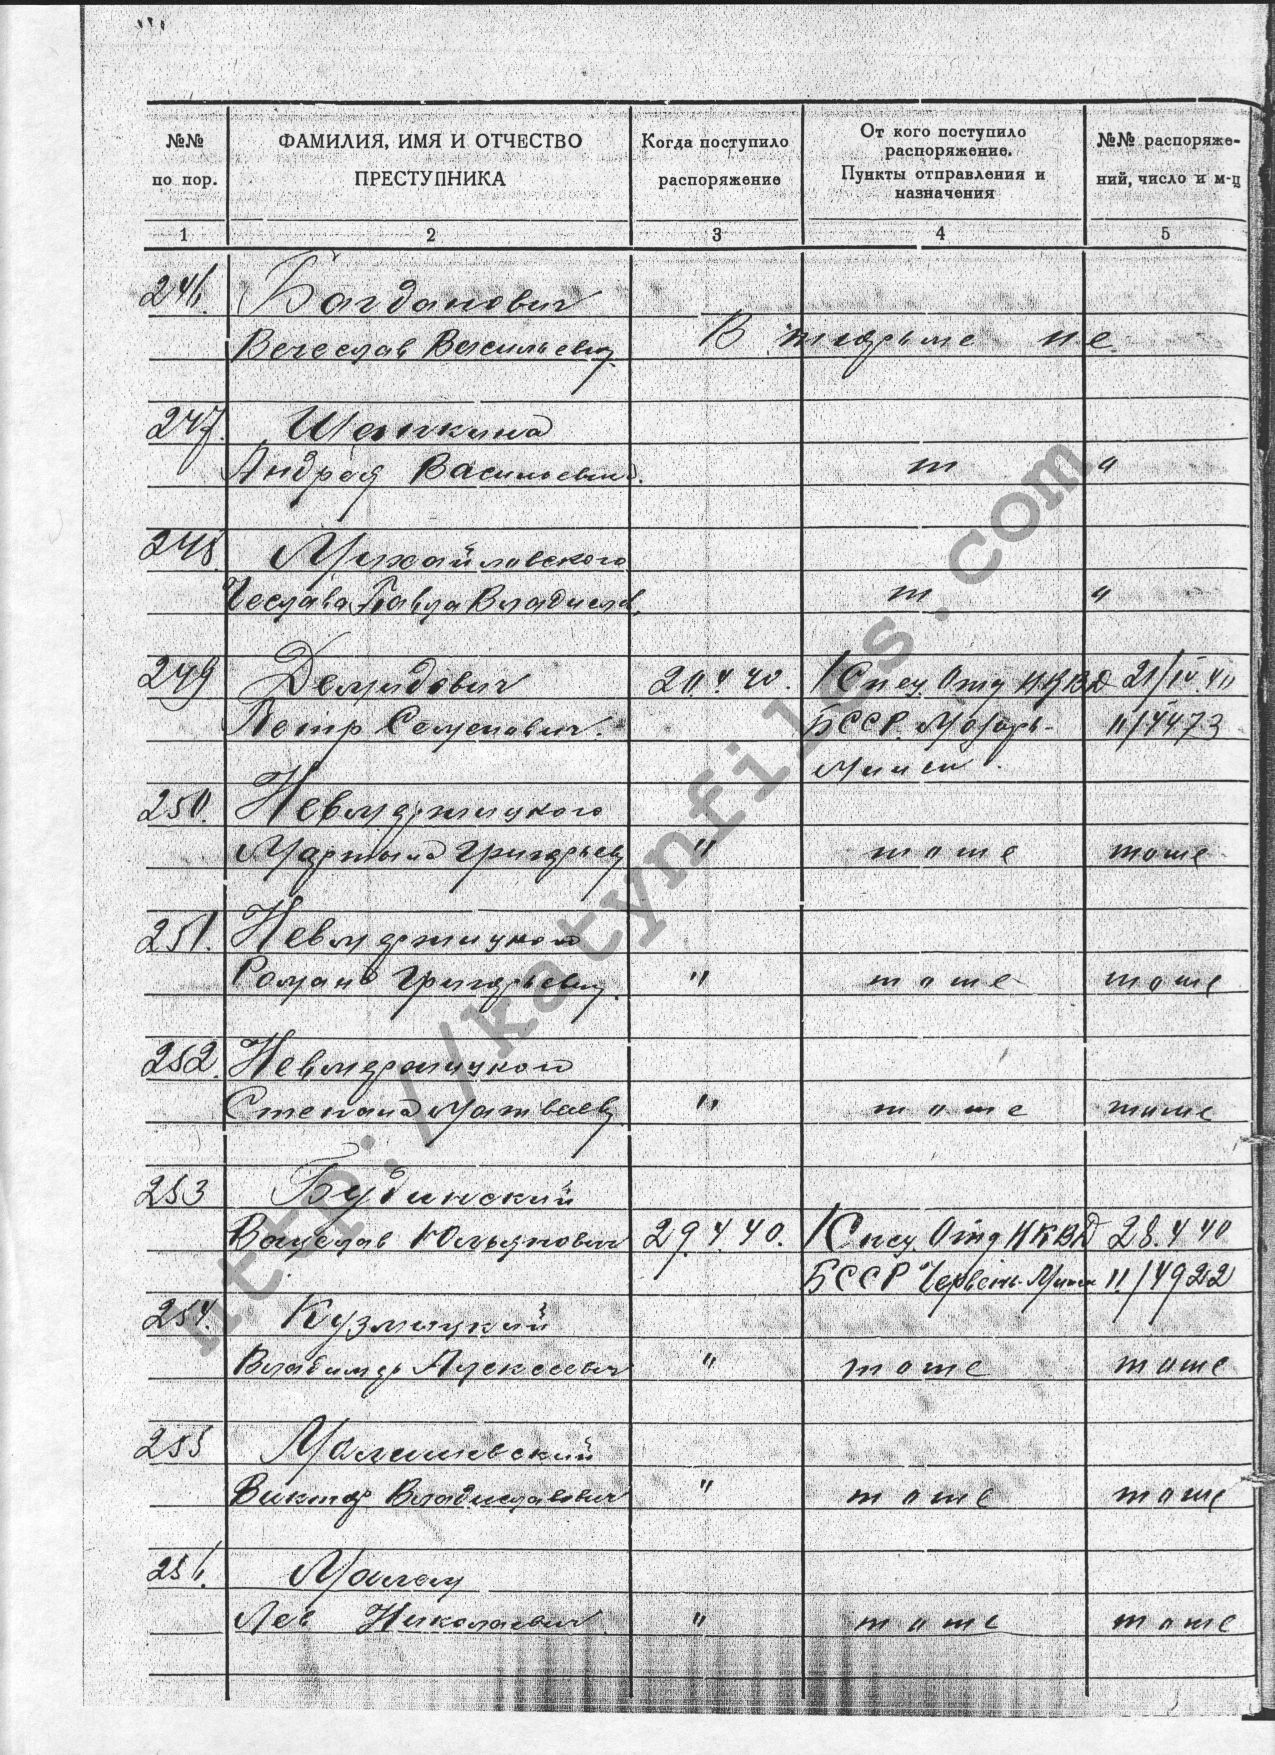 №№
по пор.
ФАМИЛИЯ, ИМЯ И ОТЧЕСТВО
ПРЕСТУПНИКА
Когда поступило
распоряжение
От кого поступило
распоряжение.
Пункты отправления и
назначения
№№ распоряже-
ний, число и м-ц
1 2 3 4 5
246. Багданович
Вечеслав Васильевич. В тюрьме не
247. Шапкина
Андрея Васильевича. т "
248. Михайловского
Чеслава, Павла Владислав. т "
249 Демидович 20.4.40. 1 Спец Отд НКВД 21/IV.40
Петр Семенович. БССР. Мозырь- 11/4473
Минск.
250. Невмержицкого
Мартына Григорьев " тоже тоже
251. Невмержицкого
Романа Григорьевич. " тоже тоже
252. Невмержицкого
Степана Матвеев " тоже тоже
253 Будинский
Вацслав Юльянович 29.4.40. 1 Спец. Отд НКВД 28.4 40
БССР Червень-Минск 11/4922
254. Кузмицкий
Владимир Алексеевич " тоже тоже
255 Малишевский
Виктор Владиславович " тоже тоже
256. Малец
Лев Николаевич. " тоже тоже
http://katynfiles.com